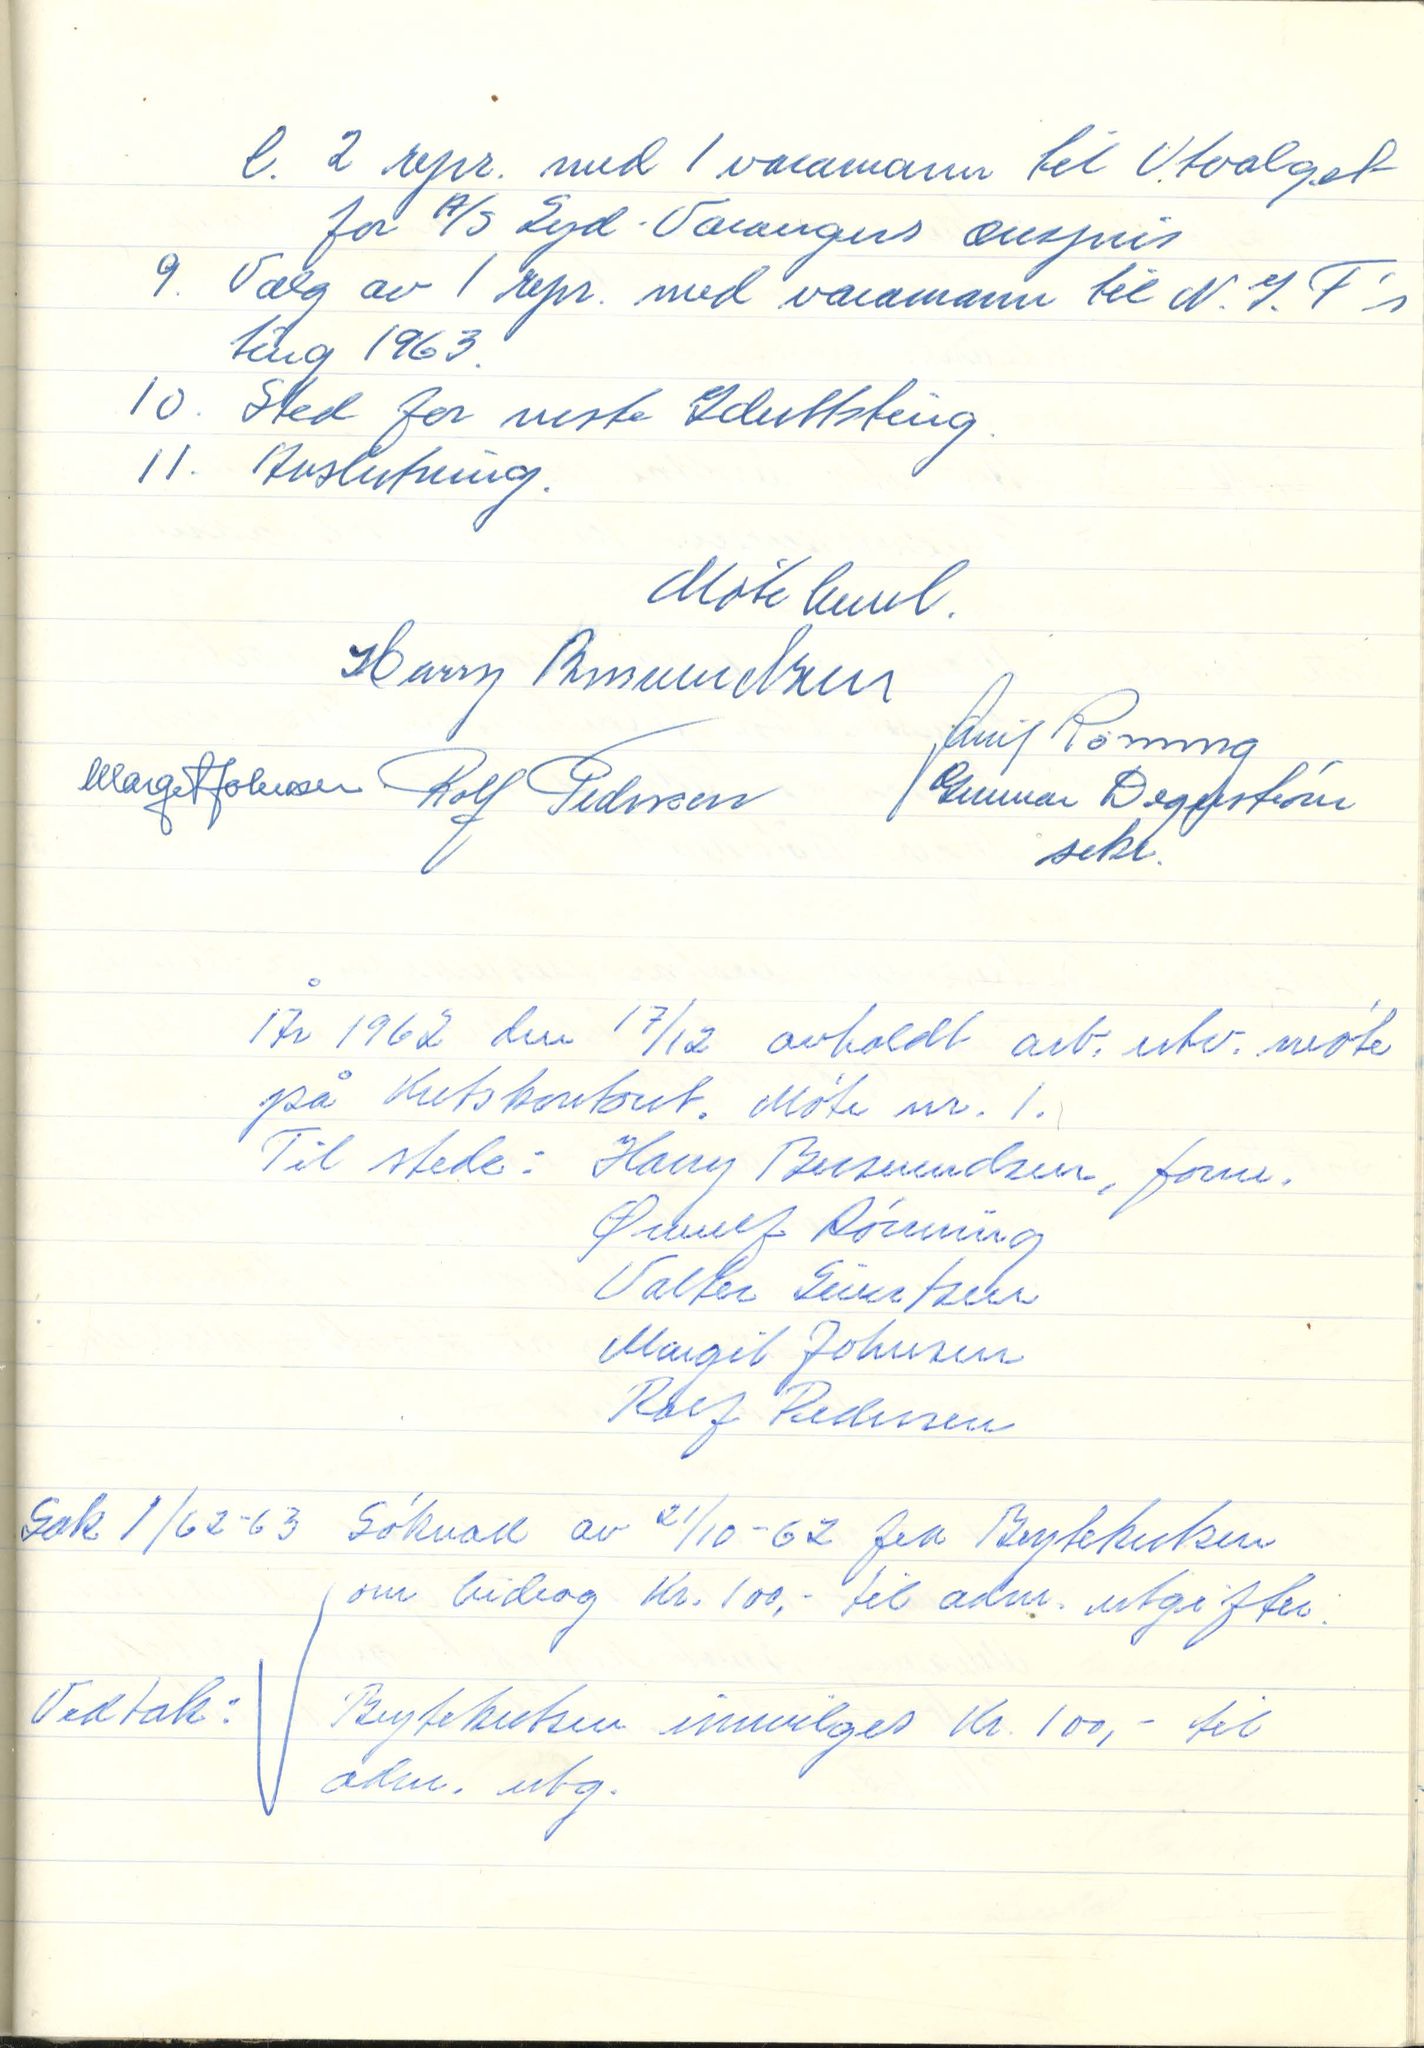 l. 2 repr. med 1 varamann til Utvalget
for A/S Syd-Varangers ærespris
9. Valg av 1 repr. med varamann til N.I.F's
ting 1963.
10. Sted for neste Idrettsting.
11. Avslutning.
Möte hevet.
Harry
Margit Johnsen Rolf Pedersen Rönning
Gunnar Degerström
sekr.
År 1962 den 17/12 avholdt arb. utv. möte
på Kretskontoret. Möte nr. 1.
Til stede: Harry Bersvendsen, form.
Ørnulf Rönning
Valter Sivertsen
Margit Johnsen
Rolf Pedersen
Sak 1/62-63 Söknad av 21/10-62 fra Brytekretsen
om bidrag Kr. 100,- til adm. utgifter.
Vedtak: Brytekretsen innvilges Kr. 100,- til
adm. utg.